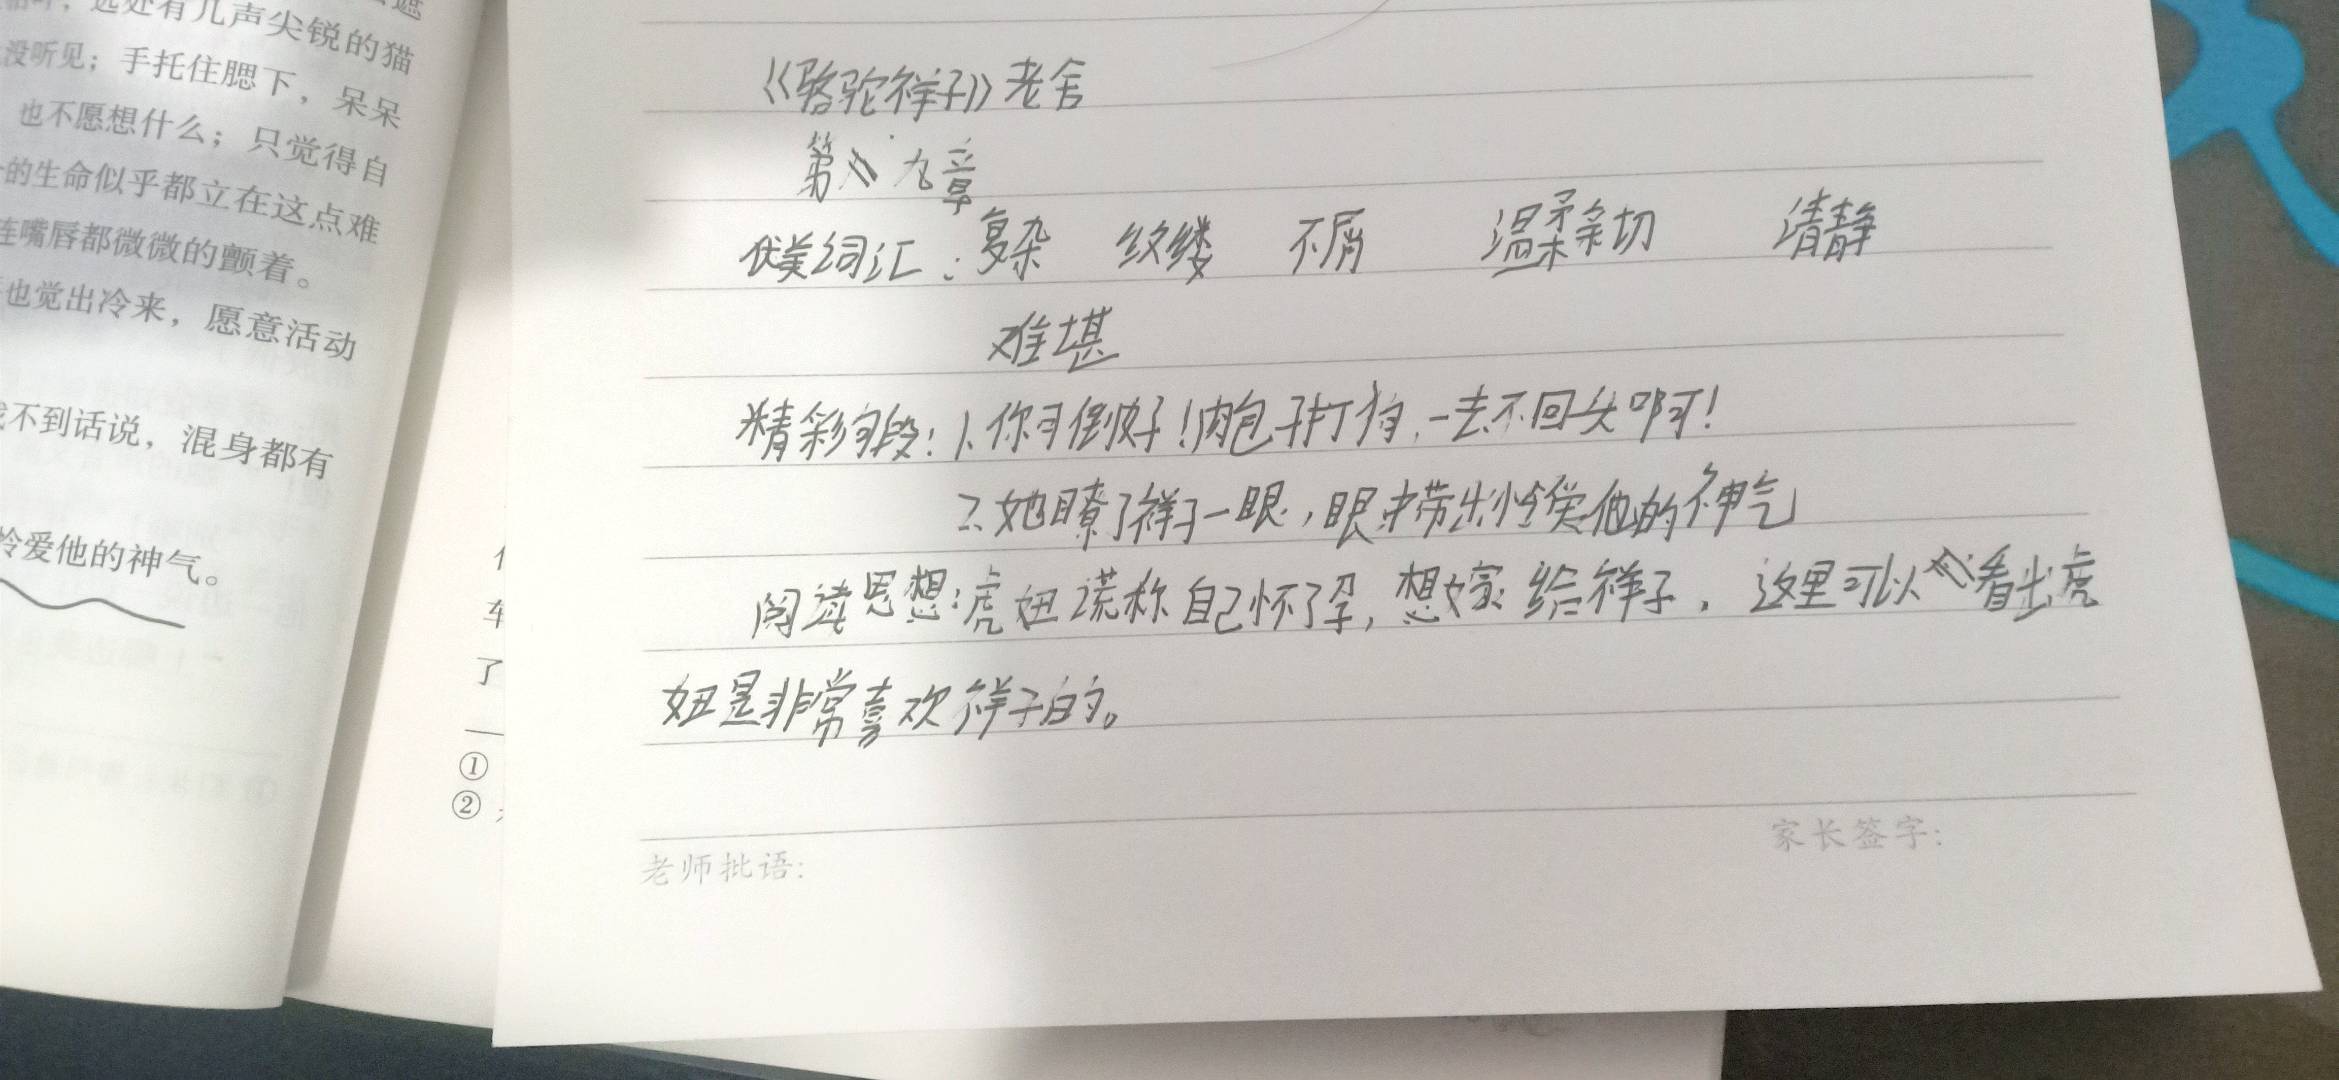 远处有几声尖锐的猫
没听见；手托住腮下，呆呆
也不愿想什么；只觉得自
的生命似乎都立在这点难
连嘴唇都微微的颤着。
也觉出冷来，愿意活动
不到话说，混身都有
怜爱他的神气。
车
了
①
②
《骆驼祥子》老舍
第九章
优美词汇：复杂 纹缕 不屑 温柔亲切 清静
难堪
精彩句段：1.你可倒好！肉包子打狗，一去不回头啊！
2.她瞭了祥子一眼，眼中带出怜爱他的神气
阅读思想：虎妞谎称自己怀了孕，想嫁给祥子，这里可以看出虎
妞是非常喜欢祥子的。
家长签字：
老师批语：